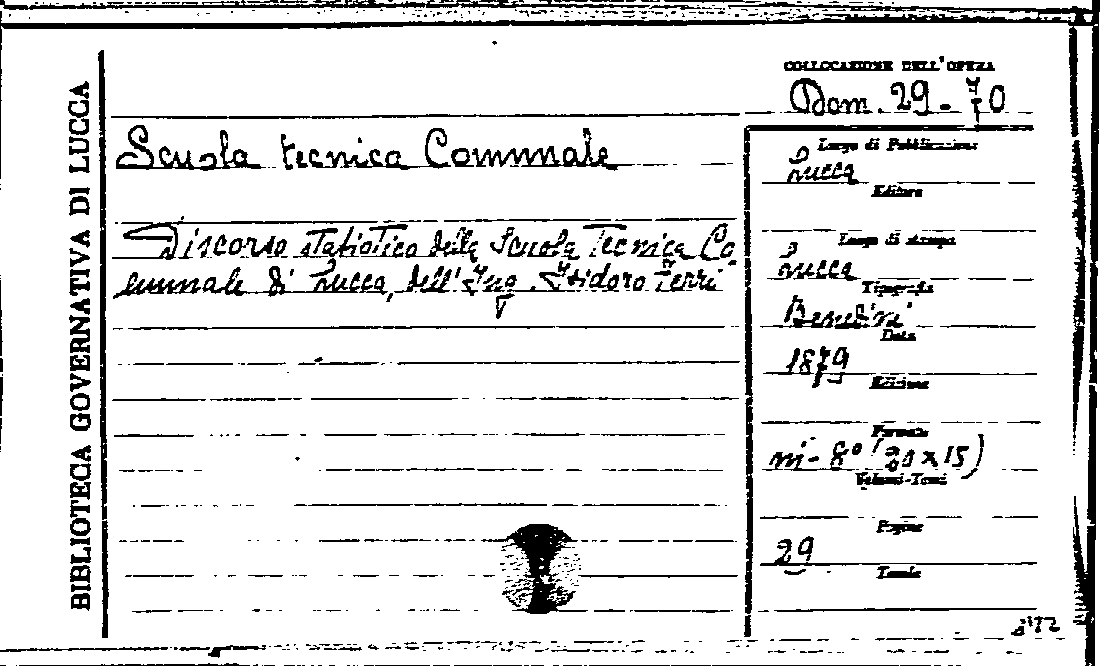 BIBLIOTECA GOVERNATIVA DI LUCCA
COLLOCAZIONE DELL'OPERA
Dom. 29-70
Scuola tecnica Comunale
Discorso statistico della Scuola Tecnica Co
munale di Lucca, dell'Ing. Isidoro Ferri
Luogo di Pubblicazione
Lucca
Editore
Luogo di stampa
Lucca
Tipografia
Benedini
Data
1879
Edizione
Formato
in-8° (20x15)
Volumi-Tomi
Pagine
29
Tavole